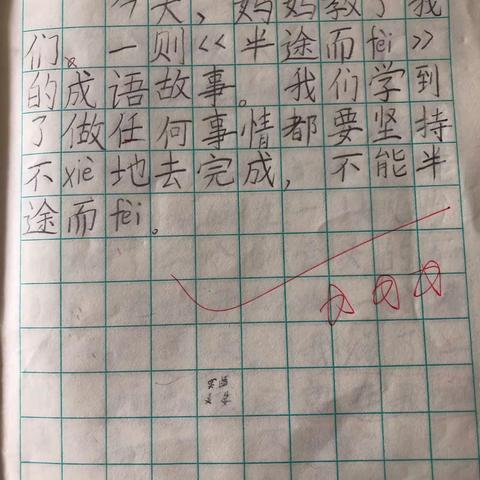 今天，妈妈教了我
们。一则《半途而fèi》
的成语故事。我们学到
了做任何事情都要坚持
不xiè地去完成，不能半
途而fèi。